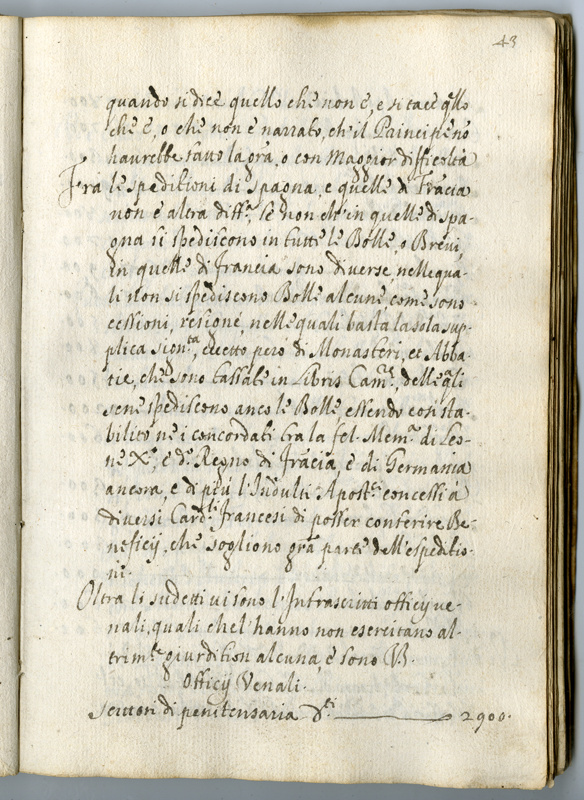 43
quando si dice quello che non è, e si tace qllo
che è, o che non è narrato, ch'il Principe nō
haurebbe fatto la gra, o con maggior difficoltà
Frà le speditioni di Spagna, e quelle di Frācia
non è altra diffa, se non ch'in quelle di Spa-
gna si spediscono in tutte le Bolle, o Brevi,
in quelle di Francia sono diverse, nelle qua-
li non si spediscono Bolle alcune come sono
cessioni, resigne, nelle quali basta la sola sup-
plica signta, eccetto però di Monasteri, et Abba-
tie, che sono tassate in Libris Came, delle qli
sene spediscono anco le Bolle essendo così sta-
bilito ne i concordati trà la fel. Mema di Leo-
ne Xo, e do Regno di Frācia, e di Germania
ancora, e di più l'Indulti Apostci concessi à
diversi Cardli francesi di posser conferire Be-
neficij, che sogliono grā parte dell'espeditio-
ni.
Oltra li sudetti vi sono l'Infrascritti officij ve-
nali, quali che l'hanno non esercitano al-
trimte giurdition alcuna, e sono V3.
Officij Venali.
Scrittori di penitensaria Δti 2900.